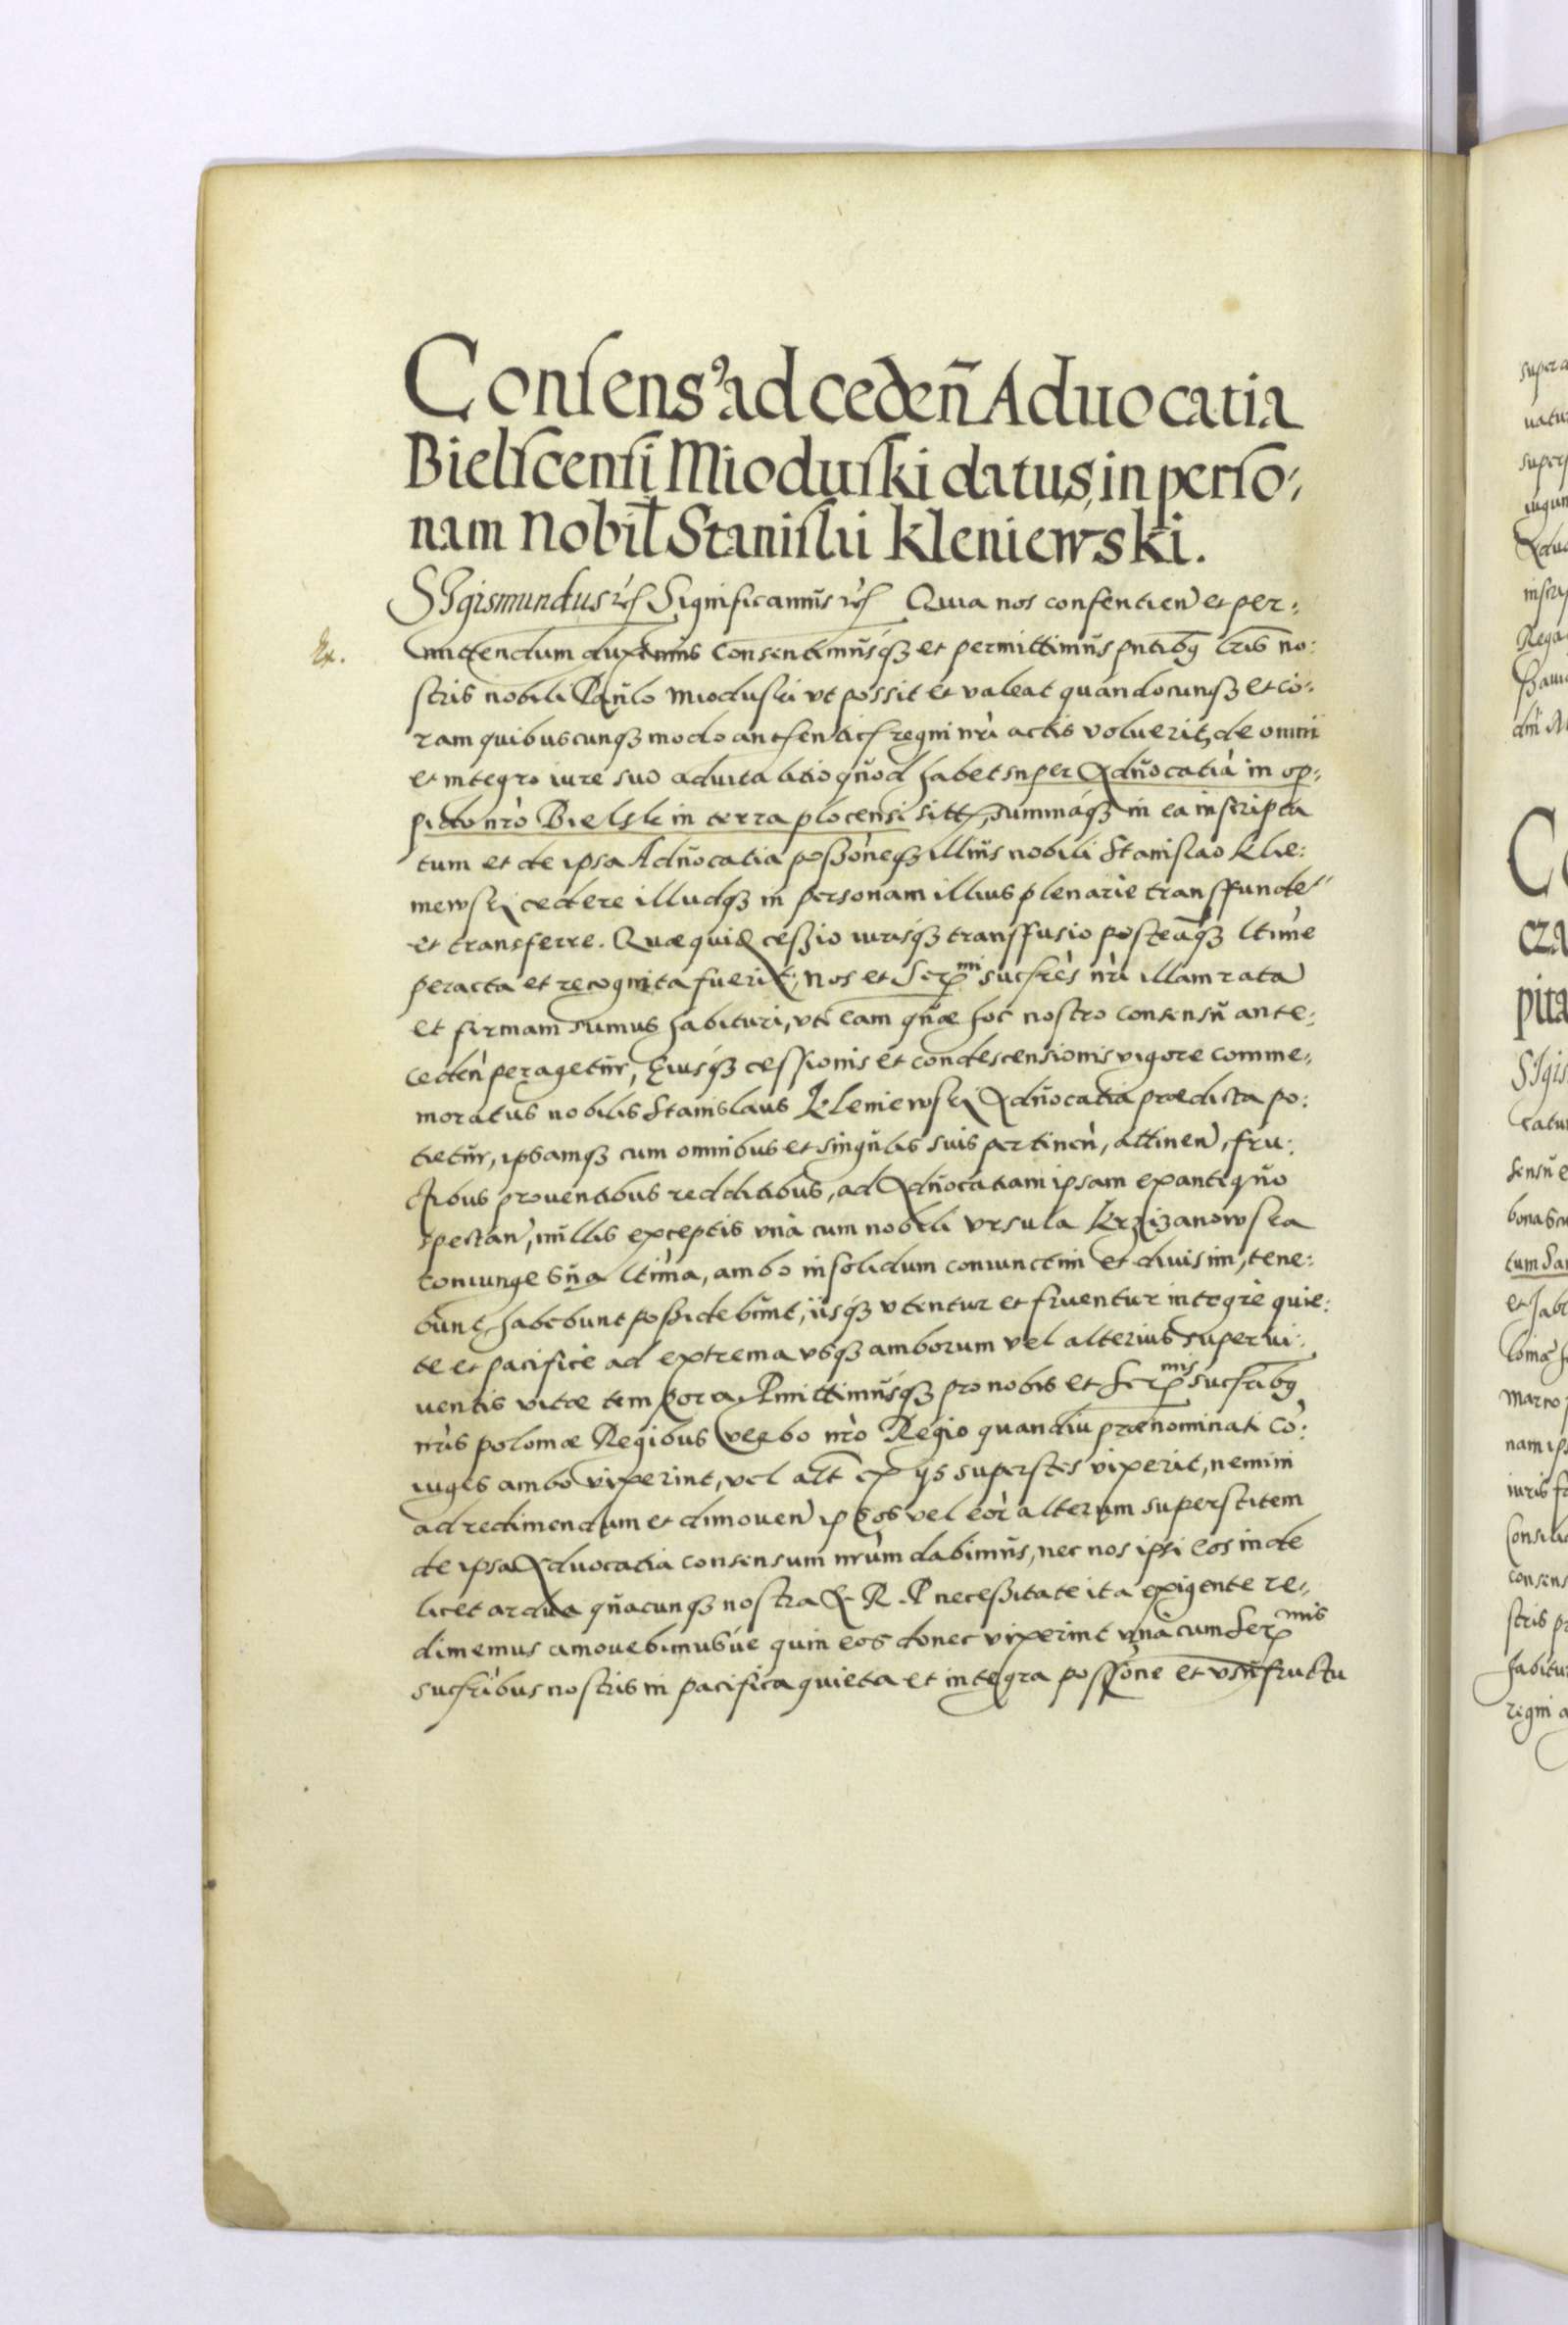 Consensꝰ ad cedeñ Aduocatia
Bielscensi Mioduski datus, in perso:
nam Nobil Stanislai Kleniewski.
SIgismundus rc̃ Significamus rc̃ Quia nos consentien̄ et per:
Ex. mittendum duximus Consentimusq̃ et permittimus pn̄tibq̃ lr̄is no:
stris nobili Paulo Mioduski vt possit et valeat quandocunq̃ et co:
ram quibuscunq̃ modo autenticis regni nr̄i actis voluerit, de omni
et integro iure suo aduitalitio quod habet super Aduocatia in op:
pido nr̄o Bielsk in terra plocensi sitt, summaq̃ in ea inscripta
tum et de ipsa Aduocatia possoneq̃ illius nobili Stanislao Klie:
niewski cedere illudq̃ in personam illius plenarie transfundere
et transferre. Quæ quid cessio iurisq̃ transfusio posteaq̃ ltime
peracta et recognita fuerit, nos et Ser^mi sucs̄res nr̄i illam ratā
et firmam sumus habituri, vti eam quæ hoc nostro consensu ante:
ceden̄ peragetur, Eiusq̃ cessionis et condescensionis vigore comme:
moratus nobilis Stanislaus Kleniewski Aduocatia prædicta po:
tietur, ipsamq̃ cum omnibus et singulis suis pertinen̄, attinen̄, fru:
ctibus prouentibus redditibus, ad Aduocatiam ipsam ex antiquo
spectan̄, nullis exceptis vnà cum nobili Vrsula Krzizanowska
coniunge sua ltima, ambo insolidum coniunctim et diuisim, tene:
bunt, habebunt possidebunt, iisq̃ vtentur et fruentur integre quie:
te et pacifice ad extrema vsq̃ amborum vel alterius superui:
uentis vitæ tempora Pmittimusq̃ pro nobis et Ser^mis sucs̄ribq̃
nr̄is poloniæ Regibus verbo nr̄o Regio quandiu prænominati cō:
iuges ambo vixerint, vel alt ex ijs superstes vixerit, nemini
ad redimendum et dimouen̄ ipsos vel eor̄ alterum superstitem
de ipsa Aduocatia consensum nr̄um dabimus, nec nos ipsi eos inde
licet ardua quacunq̃ nostra & R. P necessitate ita exigente re:
dimemus amouebimusúe quin eos donec vixerint vnà cum Ser^mis
sucs̄ribus nostris in pacifica quieta et integra possōne et vsufructu